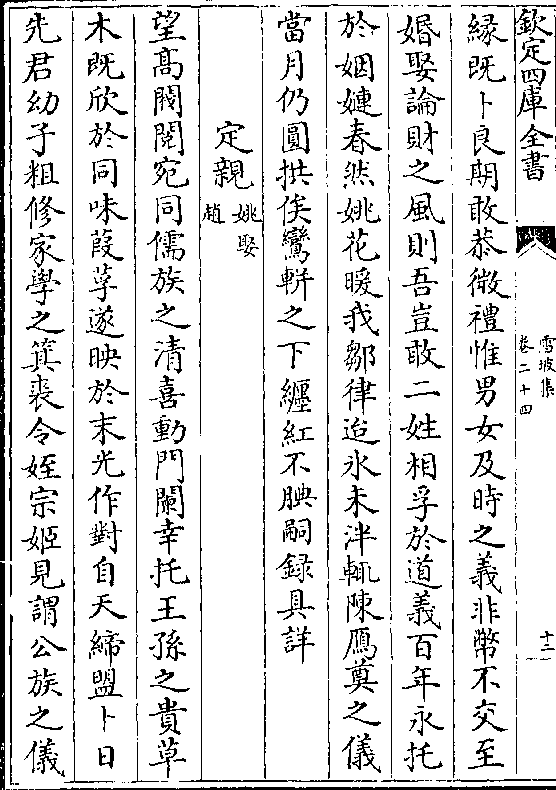 欽定四庫全書
雪坡集
卷二十四
十二
緣既卜良期敢恭微禮惟男女及時之義非幣不交至
婚娶論財之風則吾豈敢二姓相孚於道義百年永托
於姻婕春然姚花暖我鄒律迨氷未泮輒陳鴈奠之儀
當月仍圓拱俟鸞輧之下纒紅不腆嗣録具詳
定親
姚娶
趙
望髙閥閱宛同儒族之清喜動門闌幸托王孫之貴草
木既欣於同味葭莩遂映於末光作對自天締盟卜日
先君幼子粗修家學之箕裘令姪宗姬見謂公族之儀